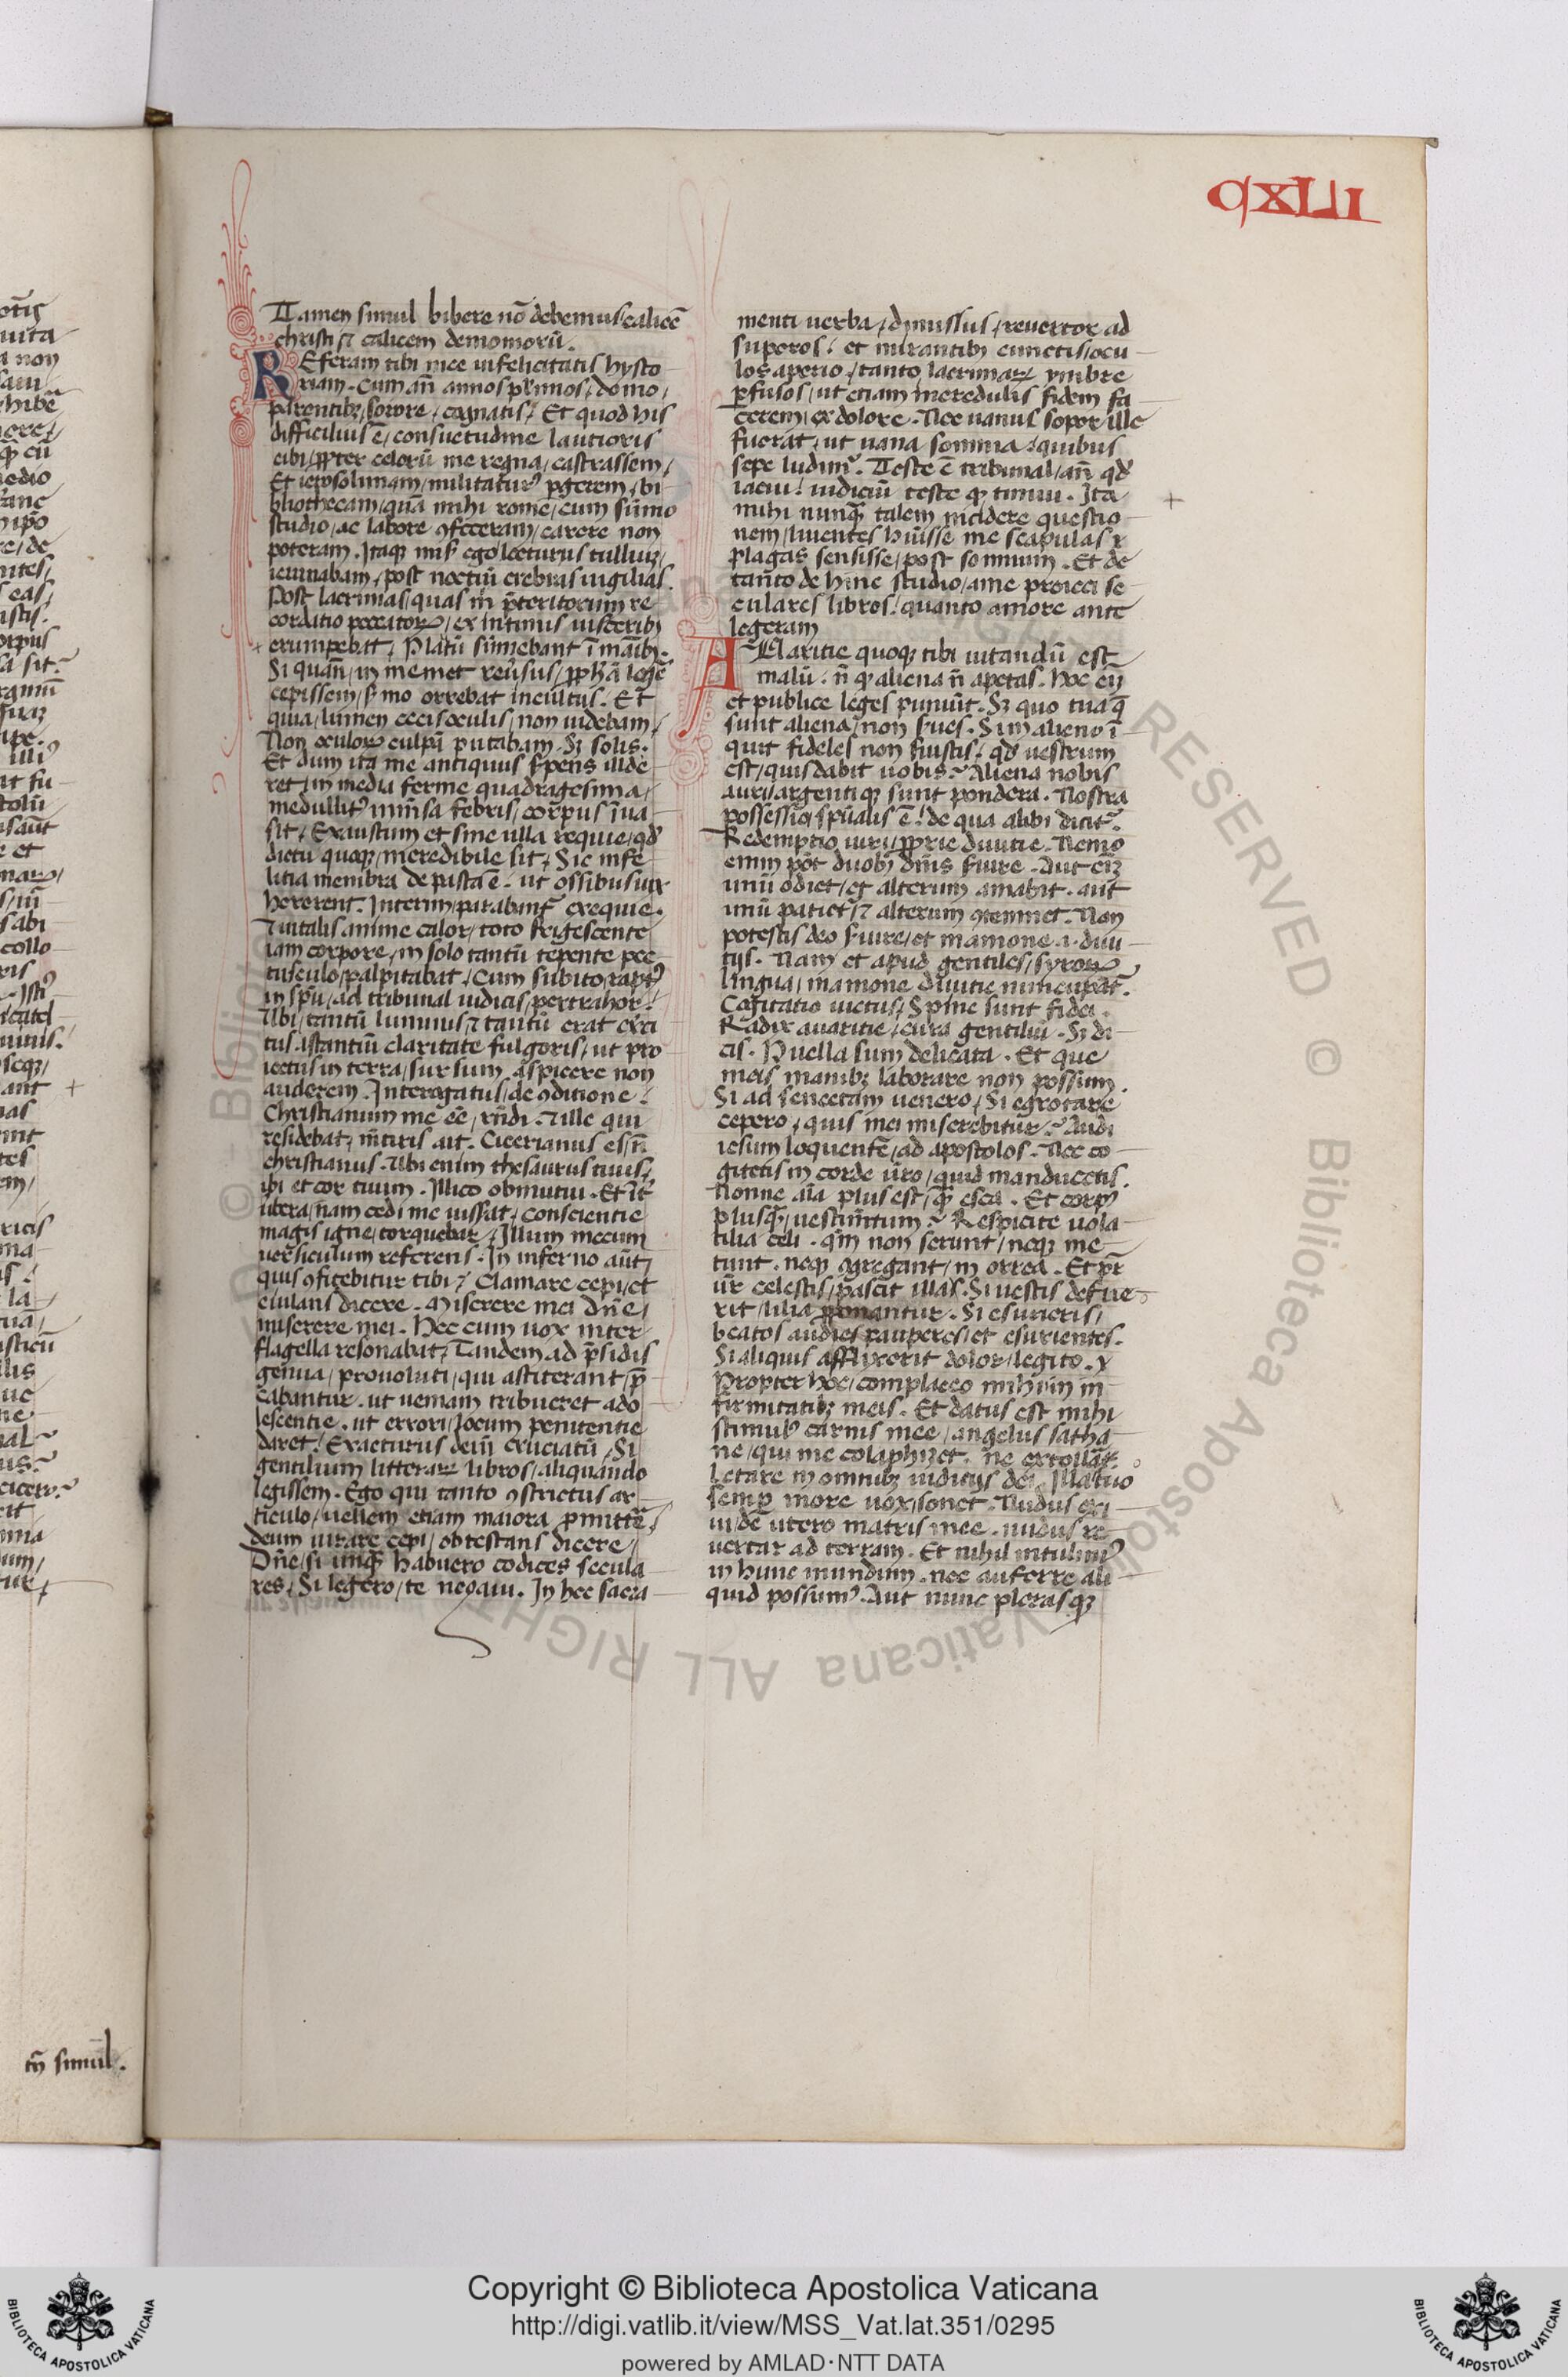 CXLII
Tamen simul bibere nō debemus calicē
christi ⁊ calicem demoniorū.
REferam tibi mee infelicitatis hysto
riam. Cum añ annos plurimos, domo,
parentibꝫ, sorore, cognatis, Et quod his
difficilius ē, consuetudine lautioris
cibi, ꝓpter celorū me regna, castrassem,
Et ierosolimam, militaturꝰ ꝑgerem, bi
bliothecam, quā mihi rome, cum sūmo
studio, ac labore ꝯfeceram, carere non
poteram. Itaqꝫ misꝭ ego lecturus tulliuꝫ,
ieiunabam, post noctiū crebras uigilias.
Post lacrimas, quas m̄ p̄teritorum re
cordatio peccatoꝝ, ex intimis uisceribꝫ
erumpebat, Platū sūmebant' ī māibꝫ.
Si quañ, in memet reūsus, ꝓph̄ā legē
cepissem, s̄mo orrebat incultus. Et
quia, lumen cecis oculis, non uidebam,
Non oculoꝝ culpā putabam, Sꝫ solis.
Et dum ita me antiquus s̄pens illude
ret, in media ferme quadragesima,
medullitꝰ inm̄sa febris, corpus īua
sit, Exaustum et sine ulla requie, qđ
dictu quoqꝫ, incredibile sit, Sic infe
licia membra depasta ē, ut ossibus uix
hererent. Interim, parabant' exequie.
⁊ uitalis anime calor, toto frigescente
iam corpore, in solo tantū tepente pec
tusculo, palpitabat, Cum subito, raptꝰ
in sp̄u, ad tribunal iudicis, pertrahor.
Ubi, tantū luminis, ⁊ tantū erat exci
tus astantiū claritate fulgoris, ut pro
iectus in terra, sursum aspicere non
auderem. Interogatus, de ꝯditione,
Christianum me eē, rn̄di. ⁊ ille qui
residebat, m̄tiris ait. Cicerianus es, n̄
christianus. Ubi enim thesaurus tuus,
ibi et cor tuum. Illico obmutui. Et it̄
ubera, nam cedi me iussat, conscientie
magis igne, torquebar, Illum mecum
uersiculum referens. In inferno aūt,
quis ꝯfitebitur tibi? Clamare cepi, et
eiulans dicere. Miserere mei dn̄e,
miserere mei. Hec cum uox inter
flagella resonabat, Tandem ad p̄sidis
genua, prouoluti, qui astiterant, p̄
cabantur. ut ueniam tribueret ado
lescentie. ut errori, locum penitentie
daret, Exacturus dein cruciatū, Si
gentilium litteraꝝ libros, aliquando
legissem. Ego qui tanto ꝯstrictus ar
ticulo, uellem etiam maiora ꝓmittē,
deum iurare cepi, obtestans dicere,
Dn̄e, si unqꝫ habuero codices secula
res, Si legero, te negaui. In hec sacra
menti uerba, dimissus, reuertor ad
superos. et mirantibꝫ cunctis, ocu
los aperio, tanto, lacrimaꝝ ymbre
ꝑfusos, ut etiam incredulis fidem fa
cerem, ex dolore. Nec uanus sopor ille
fuerat, ut uana somnia, quibus
sepe ludimꝰ. Teste ē tribunal, añ qđ
iacui, iudiciū teste qꝫ timui. Ita
mihi nunqꝫ talem incidere questio
nem, liuentes huisse me scapulas ⁊
plagas sensisse, post somnum. Et de
tanto de hinc studio, a me proieci se
culares libros, quanto amore ante
legeram
AUaritie quoqꝫ tibi uitandū est
malū. n̄ qꝫ aliena n̄ apetas. Hoc en̄
et publice leges puniūt. Sꝫ quo tua qꝫ
sunt aliena, non s̄ues. Si in alieno ī
quit fideles non fuistis, qđ uestrum
est, quis dabit uobis? Aliena nobis
auri, argenti qꝫ sunt pondera. Nostra
possessio sp̄ualis ē, de qua alibi dicit'.
Redemptio uiri, ꝓprie diuitie. Nemo
enim pōt duobꝫ dn̄is s̄uire. Aut eīꝫ
unū odiet, et alterum amabit. aut
unū patiet', ⁊ alterum ꝯtemnet. Non
potestis deo s̄uire, et mamone .i. diui
tijs. Nam et apud gentiles, syroꝝ
lingua, mamone diuitie nuncupāt'.
Cogitatio uictus, Spine sunt fidei.
Radix auaritie, cura gentiliū. Sꝫ di
cis. Puella sum delicata. Et que
meis manibꝫ laborare non possum.
Si ad senectam uenero, Si egrotare
cepero, quis mei miserebitur? Audi
iesum loquentē, ad apostolos. Nec co
gitetis in corde ur̄o, quid manducetis.
Nonne aīa plus est, qꝫ esca. Et corpꝰ
plusqꝫ, uestim̄tum? Respicite uola
tilia celi. qm̄ non serunt, neqꝫ me
tunt. neqꝫ ꝯgregant, in orrea. Et pr̄
ur̄ celestis, pascit illas. Si uestis defue
rit, lilia ꝓponantur. Si esurieris,
beatos audies pauperes, et esurientes.
Si aliquis afflixerit dolor, legito. ⁊
Propter hoc, complaceo mihi in in
firmitatibꝫ meis. Et datus est mihi
stimulꝰ carnis mee, angelus satha
ne, qui me colaphizet. ne extollār.
Letare in omnibꝫ iudicijs dei. Illa tuo
semꝑ more uox sonet. Nudus exi
ui, de utero matris mee. nudus re
uertar ad terram. Et nihil intulimꝰ
in hunc mundum. nec auferre ali
quid possumꝰ. Aut nunc plerasqꝫ
tn̄ simul.
Copyright © Biblioteca Apostolica Vaticana
http://digi.vatlib.it/view/MSS_Vat.lat.351/0295
powered by AMLAD·NTT DATA
BIBLIOTECA APOSTOLICA VATICANA
BIBLIOTECA APOSTOLICA VATICANA